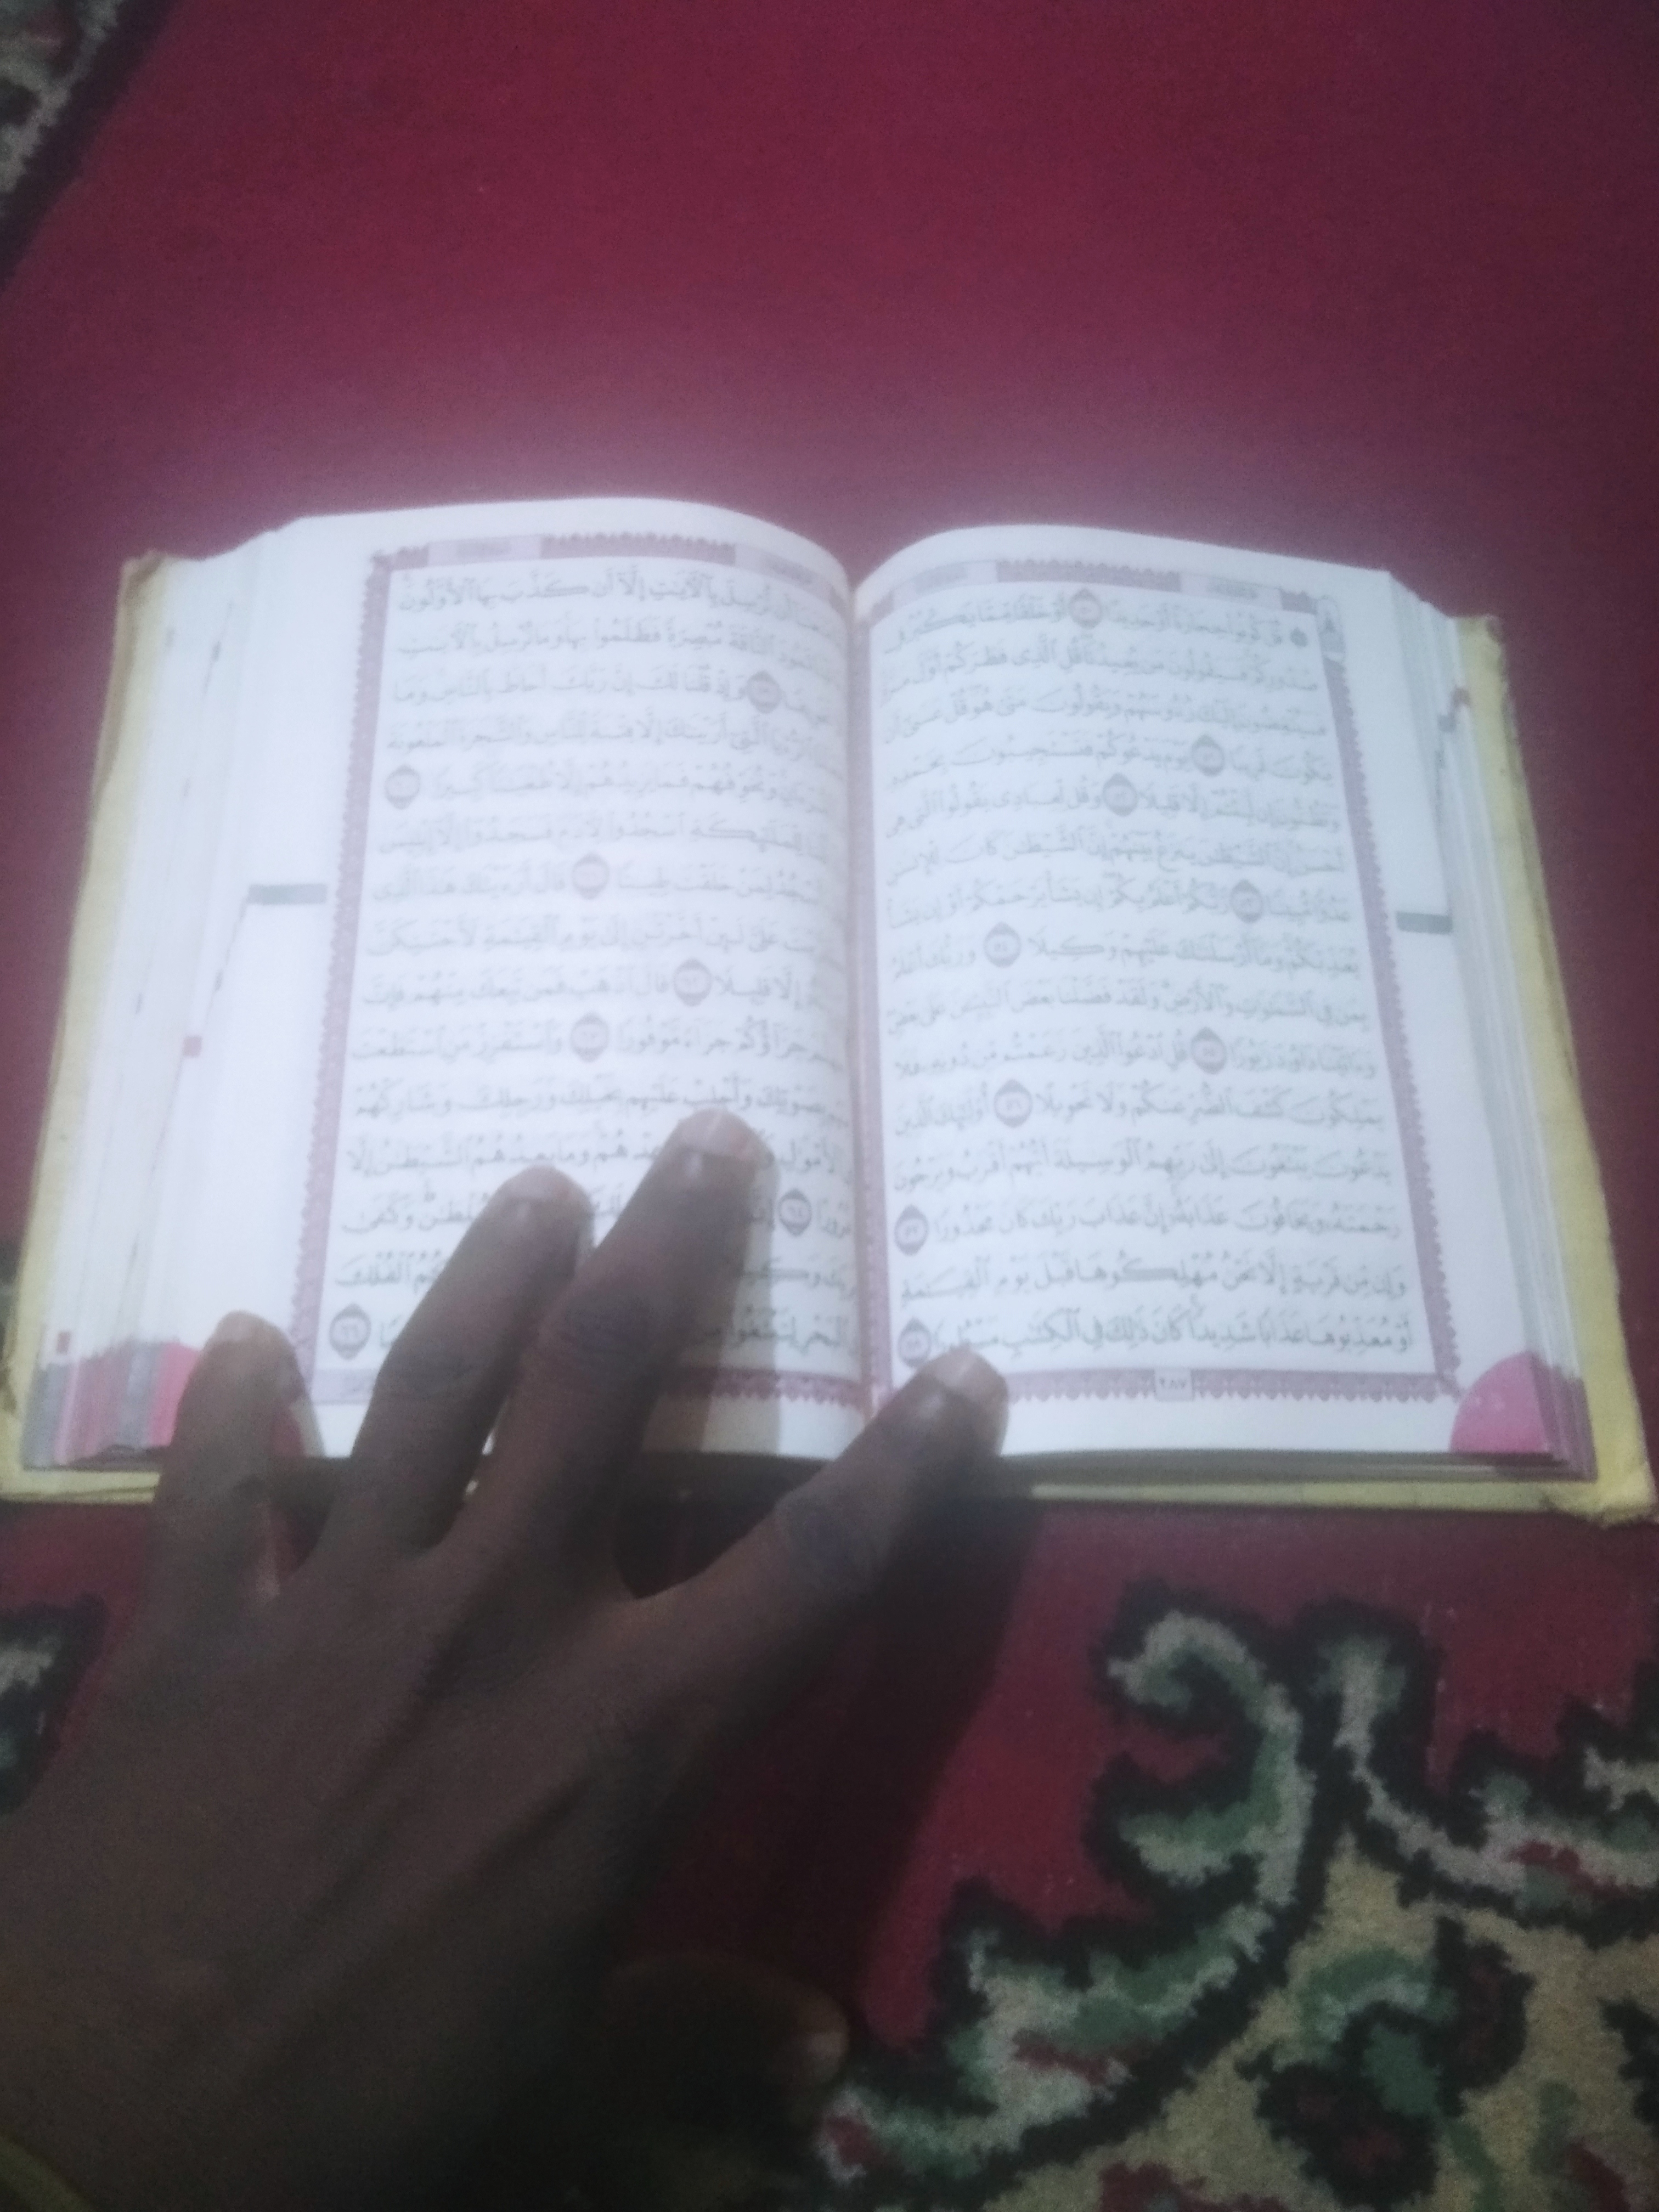 ۞ قُلْ كُونُوا۟ حِجَارَةً أَوْ حَدِيدًا ۝٥٠ أَوْ خَلْقًا مِّمَّا يَكْبُرُ فِى
صُدُورِكُمْ فَسَيَقُولُونَ مَن يُعِيدُنَا قُلِ ٱلَّذِى فَطَرَكُمْ أَوَّلَ مَرَّةٍ
فَسَيُنْغِضُونَ إِلَيْكَ رُءُوسَهُمْ وَيَقُولُونَ مَتَىٰ هُوَ قُلْ عَسَىٰٓ أَن
يَكُونَ قَرِيبًا ۝٥١ يَوْمَ يَدْعُوكُمْ فَتَسْتَجِيبُونَ بِحَمْدِهِۦ
وَتَظُنُّونَ إِن لَّبِثْتُمْ إِلَّا قَلِيلًا ۝٥٢ وَقُل لِّعِبَادِى يَقُولُوا۟ ٱلَّتِى هِىَ
أَحْسَنُ إِنَّ ٱلشَّيْطَٰنَ يَنزَغُ بَيْنَهُمْ إِنَّ ٱلشَّيْطَٰنَ كَانَ لِلْإِنسَٰنِ
عَدُوًّا مُّبِينًا ۝٥٣ رَّبُّكُمْ أَعْلَمُ بِكُمْ إِن يَشَأْ يَرْحَمْكُمْ أَوْ إِن يَشَأْ
يُعَذِّبْكُمْ وَمَآ أَرْسَلْنَٰكَ عَلَيْهِمْ وَكِيلًا ۝٥٤ وَرَبُّكَ أَعْلَمُ
بِمَن فِى ٱلسَّمَٰوَٰتِ وَٱلْأَرْضِ وَلَقَدْ فَضَّلْنَا بَعْضَ ٱلنَّبِيِّۦنَ عَلَىٰ بَعْضٍ
وَءَاتَيْنَا دَاوُۥدَ زَبُورًا ۝٥٥ قُلِ ٱدْعُوا۟ ٱلَّذِينَ زَعَمْتُم مِّن دُونِهِۦ فَلَا
يَمْلِكُونَ كَشْفَ ٱلضُّرِّ عَنكُمْ وَلَا تَحْوِيلًا ۝٥٦ أُو۟لَٰٓئِكَ ٱلَّذِينَ
يَدْعُونَ يَبْتَغُونَ إِلَىٰ رَبِّهِمُ ٱلْوَسِيلَةَ أَيُّهُمْ أَقْرَبُ وَيَرْجُونَ
رَحْمَتَهُۥ وَيَخَافُونَ عَذَابَهُۥٓ إِنَّ عَذَابَ رَبِّكَ كَانَ مَحْذُورًا ۝٥٧
وَإِن مِّن قَرْيَةٍ إِلَّا نَحْنُ مُهْلِكُوهَا قَبْلَ يَوْمِ ٱلْقِيَٰمَةِ
أَوْ مُعَذِّبُوهَا عَذَابًا شَدِيدًا كَانَ ذَٰلِكَ فِى ٱلْكِتَٰبِ مَسْطُورًا ۝٥٨
٢٨٧
نُّرْسِلَ بِٱلْءَايَٰتِ إِلَّآ أَن كَذَّبَ بِهَا ٱلْأَوَّلُونَ
ثَمُودَ ٱلنَّاقَةَ مُبْصِرَةً فَظَلَمُوا۟ بِهَا وَمَا نُرْسِلُ بِٱلْءَايَٰتِ
تَخْوِيفًا ۝٥٩ وَإِذْ قُلْنَا لَكَ إِنَّ رَبَّكَ أَحَاطَ بِٱلنَّاسِ وَمَا
ٱلرُّءْيَا ٱلَّتِىٓ أَرَيْنَٰكَ إِلَّا فِتْنَةً لِّلنَّاسِ وَٱلشَّجَرَةَ ٱلْمَلْعُونَةَ
وَنُخَوِّفُهُمْ فَمَا يَزِيدُهُمْ إِلَّا طُغْيَٰنًا كَبِيرًا ۝٦٠
لِلْمَلَٰٓئِكَةِ ٱسْجُدُوا۟ لِءَادَمَ فَسَجَدُوٓا۟ إِلَّآ إِبْلِيسَ
لِمَنْ خَلَقْتَ طِينًا ۝٦١ قَالَ أَرَءَيْتَكَ هَٰذَا ٱلَّذِى
عَلَىَّ لَئِنْ أَخَّرْتَنِ إِلَىٰ يَوْمِ ٱلْقِيَٰمَةِ لَأَحْتَنِكَنَّ
إِلَّا قَلِيلًا ۝٦٢ قَالَ ٱذْهَبْ فَمَن تَبِعَكَ مِنْهُمْ فَإِنَّ
جَزَآؤُكُمْ جَزَآءً مَّوْفُورًا ۝٦٣ وَٱسْتَفْزِزْ مَنِ ٱسْتَطَعْتَ
بِصَوْتِكَ وَأَجْلِبْ عَلَيْهِم بِخَيْلِكَ وَرَجِلِكَ وَشَارِكْهُمْ
ٱلْأَمْوَٰلِ وَمَا يَعِدُهُمُ ٱلشَّيْطَٰنُ إِلَّا
غُرُورًا ۝٦٤ سُلْطَٰنٌ وَكَفَىٰ
ٱلْفُلْكَ
ٱلْبَحْرِ لِتَبْتَغُوا۟ ۝٦٦